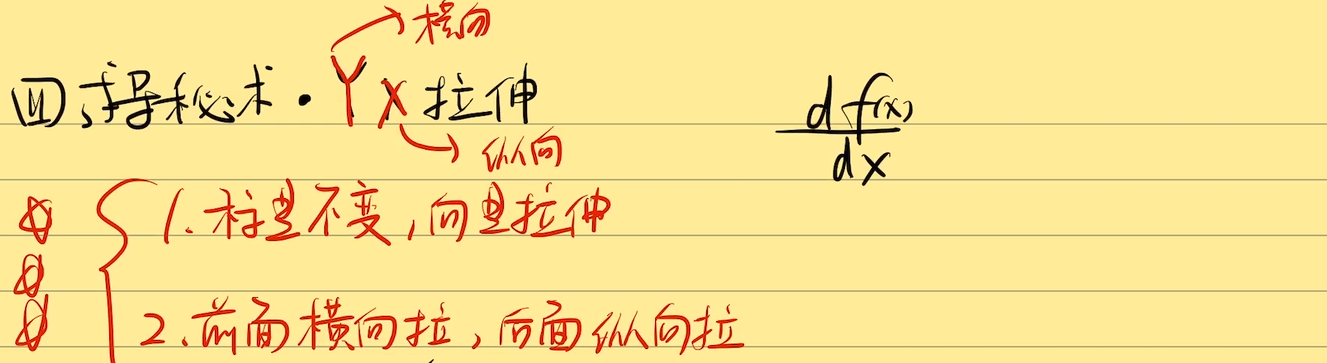 横向
四、求导秘术·YX拉伸
纵向
d f(x)
dx
1.标量不变,向量拉伸
2.前面横向拉,后面纵向拉